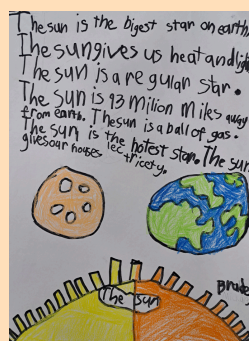 The sun is the bigest star on earth.
The sun gives us heat and light
The sun is a regular star.
The sun is 93 milion miles away
from earth. The sun is a ball of gas.
The sun is the hotest star. The sun
gives our houses lec tricety.
The sun
Brade